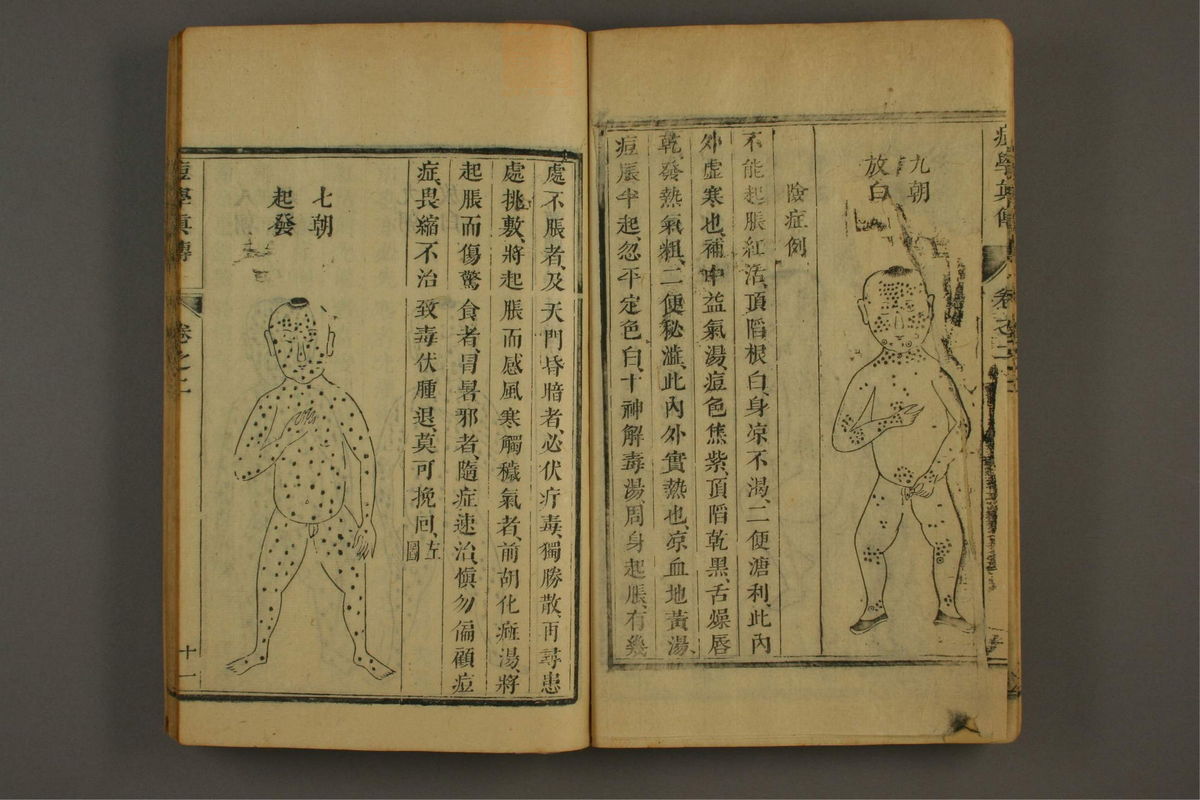 九朝
放白
陰症例
不能起脹紅活、頂陷根白、身凉不渴、二便溏利、此內
外虛寒也、補中益氣湯、痘色焦紫、頂陷乾黑、舌燥唇
乾、發熱氣粗、二便秘澁、此內外實熱也、凉血地黃湯、
痘脹半起、忽平定色白、十神解毒湯、周身起脹、有幾
處不脹者、及天門昏暗者、必伏疔毒、獨勝散、再尋患
處挑敷、將起脹而感風寒觸穢氣者、前胡化癍湯、將
起脹而傷驚食者、冒暑邪者、隨症速治、愼勿偏顧痘
症、畏縮不治致毒伏腫退、莫可挽回、左圖
七朝
起發
痘學眞傳
卷之二
十一